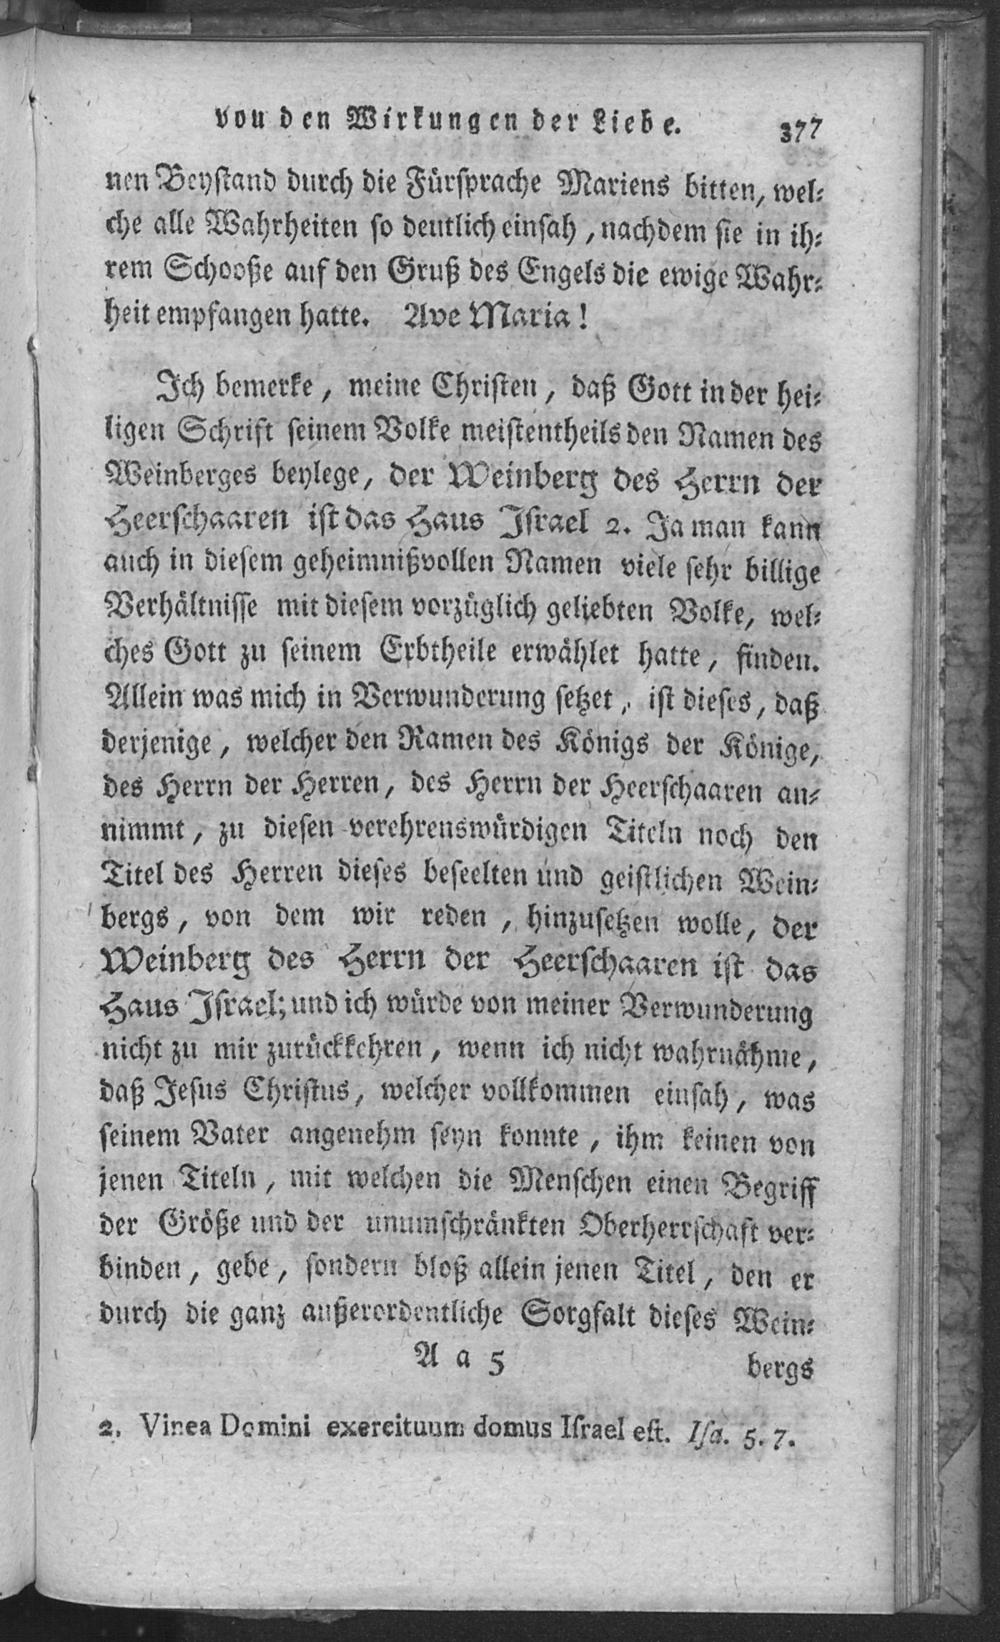 von den Wirkungen der Liebe. 377
nen Beystand durch die Fürsprache Mariens bitten, wel-
che alle Wahrheiten so deutlich einsah, nachdem sie in ih-
rem Schooße auf den Gruß des Engels die ewige Wahr-
heit empfangen hatte. Ave Maria!
Ich bemerke, meine Christen, daß Gott in der hei-
ligen Schrift seinem Volke meistentheils den Namen des
Weinberges beylege, der Weinberg des Herrn der
Heerschaaren ist das Haus Israel 2. Ja man kann
auch in diesem geheimnißvollen Namen viele sehr billige
Verhältnisse mit diesem vorzüglich geliebten Volke, wel-
ches Gott zu seinem Erbtheile erwählet hatte, finden.
Allein was mich in Verwunderung setzet, ist dieses, daß
derjenige, welcher den Namen des Königs der Könige,
des Herrn der Herren, des Herrn der Heerschaaren an-
nimmt, zu diesen verehrenswürdigen Titeln noch den
Titel des Herren dieses beseelten und geistlichen Wein-
bergs, von dem wir reden, hinzusetzen wolle, der
Weinberg des Herrn der Heerschaaren ist das
Haus Israel; und ich würde von meiner Verwunderung
nicht zu mir zurückkehren, wenn ich nicht wahrnähme,
daß Jesus Christus, welcher vollkommen einsah, was
seinem Vater angenehm seyn konnte, ihm keinen von
jenen Titeln, mit welchen die Menschen einen Begriff
der Größe und der unumschränkten Oberherrschaft ver-
binden, gebe, sondern bloß allein jenen Titel, den er
durch die ganz außerordentliche Sorgfalt dieses Wein-
A a 5 bergs
2. Vinea Domini exercituum domus Israel est. Isa. 5. 7.